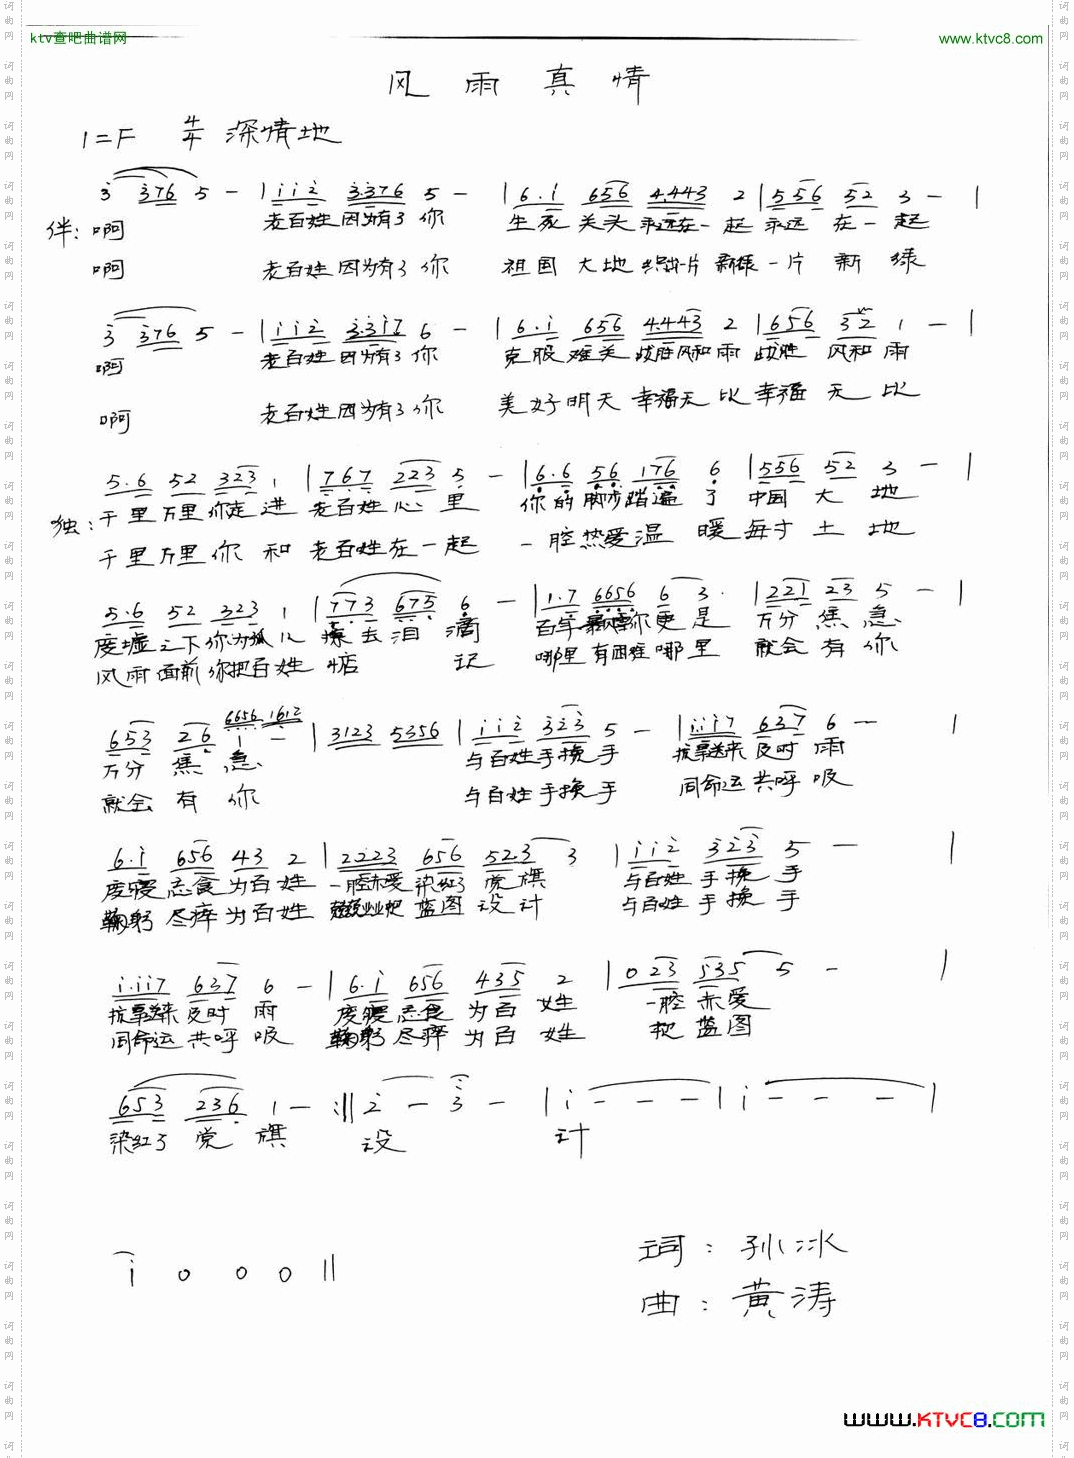 ktv查吧曲谱网
www.ktvc8.com
风雨真情
1=F 4/4 深情地
3 376 5 - | i i 2 3.376 5 - | 6.i 656 4.443 2 | 556 52 3 - |
伴: 啊 老百姓因为有了你 生死关头永远在一起永远在一起
啊 老百姓因为有了你 祖国大地 一片新绿一片新绿
3 376 5 - | i i 2 3.3i7 6 - | 6.i 656 4.443 2 | 656 32 1 - |
啊 老百姓因为有了你 克服难关战胜风和雨战胜风和雨
啊 老百姓因为有了你 美好明天幸福无比幸福无比
5.6 52 323 1 | 767 223 5 - | 6.6 56 176 6 | 556 52 3 - |
独: 千里万里你走进老百姓心里 你的脚步踏遍了中国大地
千里万里你和老百姓在一起 一腔热爱温暖每寸土地
5.6 52 323 1 | 773 675 6 - | 1.7 6656 6 3. | 221 23 5 - |
废墟之下你为孤儿擦去泪滴 百年 你更是万分焦急
风雨面前你把百姓惦记 哪里有困难哪里就会有你
6656 1612
653 26 1 - | 3123 5356 | i i 2 323 5 - | i.ii7 637 6 - |
万分焦急 与百姓手挽手 送来及时雨
就会有你 与百姓手挽手 同命运共呼吸
6.i 656 43 2 | 2223 656 523 3 | i i 2 323 5 - |
废寝忘食为百姓一腔赤爱染红了党旗 与百姓手挽手
鞠躬尽瘁为百姓 把蓝图设计 与百姓手挽手
i.ii7 637 6 - | 6.i 656 435 2 | 0 23 535 5 - |
送来及时雨 废寝忘食为百姓 一腔赤爱
同命运共呼吸 鞠躬尽瘁为百姓 把蓝图
653 236 1 - :|| 2 - 3 - | i - - - | i - - - |
染红了党旗 设 计
i 0 0 0 ||
词: 孙冰
曲: 黄涛
www.KTVC8.com
词曲网